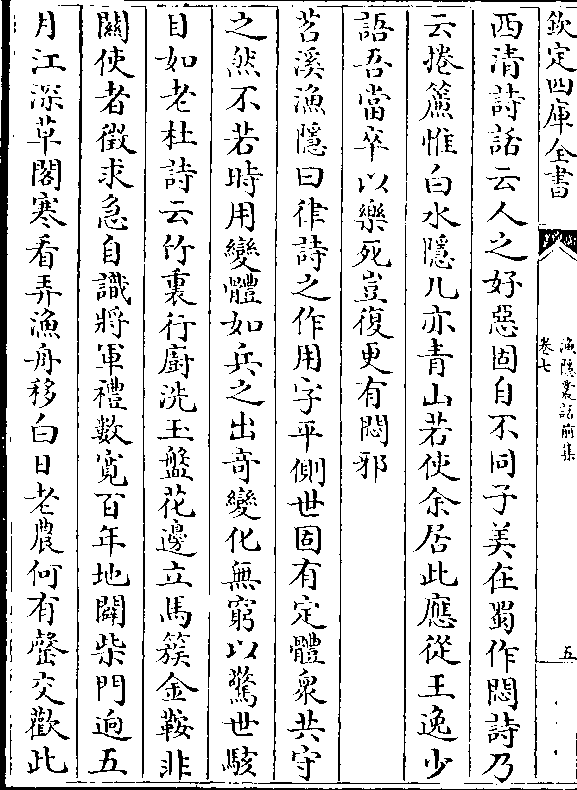 欽定四庫全書
漁隱叢話前集
卷七
五
西清詩話云人之好惡固自不同子美在蜀作悶詩乃
云捲簾惟白水隱几亦青山若使余居此應從王逸少
語吾當卒以樂死豈復更有悶邪
苕溪漁隱曰律詩之作用字平側世固有定體衆共守
之然不若時用變體如兵之出奇變化無窮以驚世駭
目如老杜詩云竹裏行廚洗玉盤花邊立馬簇金鞍非
關使者徵求急自識將軍禮數寛百年地闢柴門逈五
月江深草閣寒看弄漁舟移白日老農何有罄交歡此